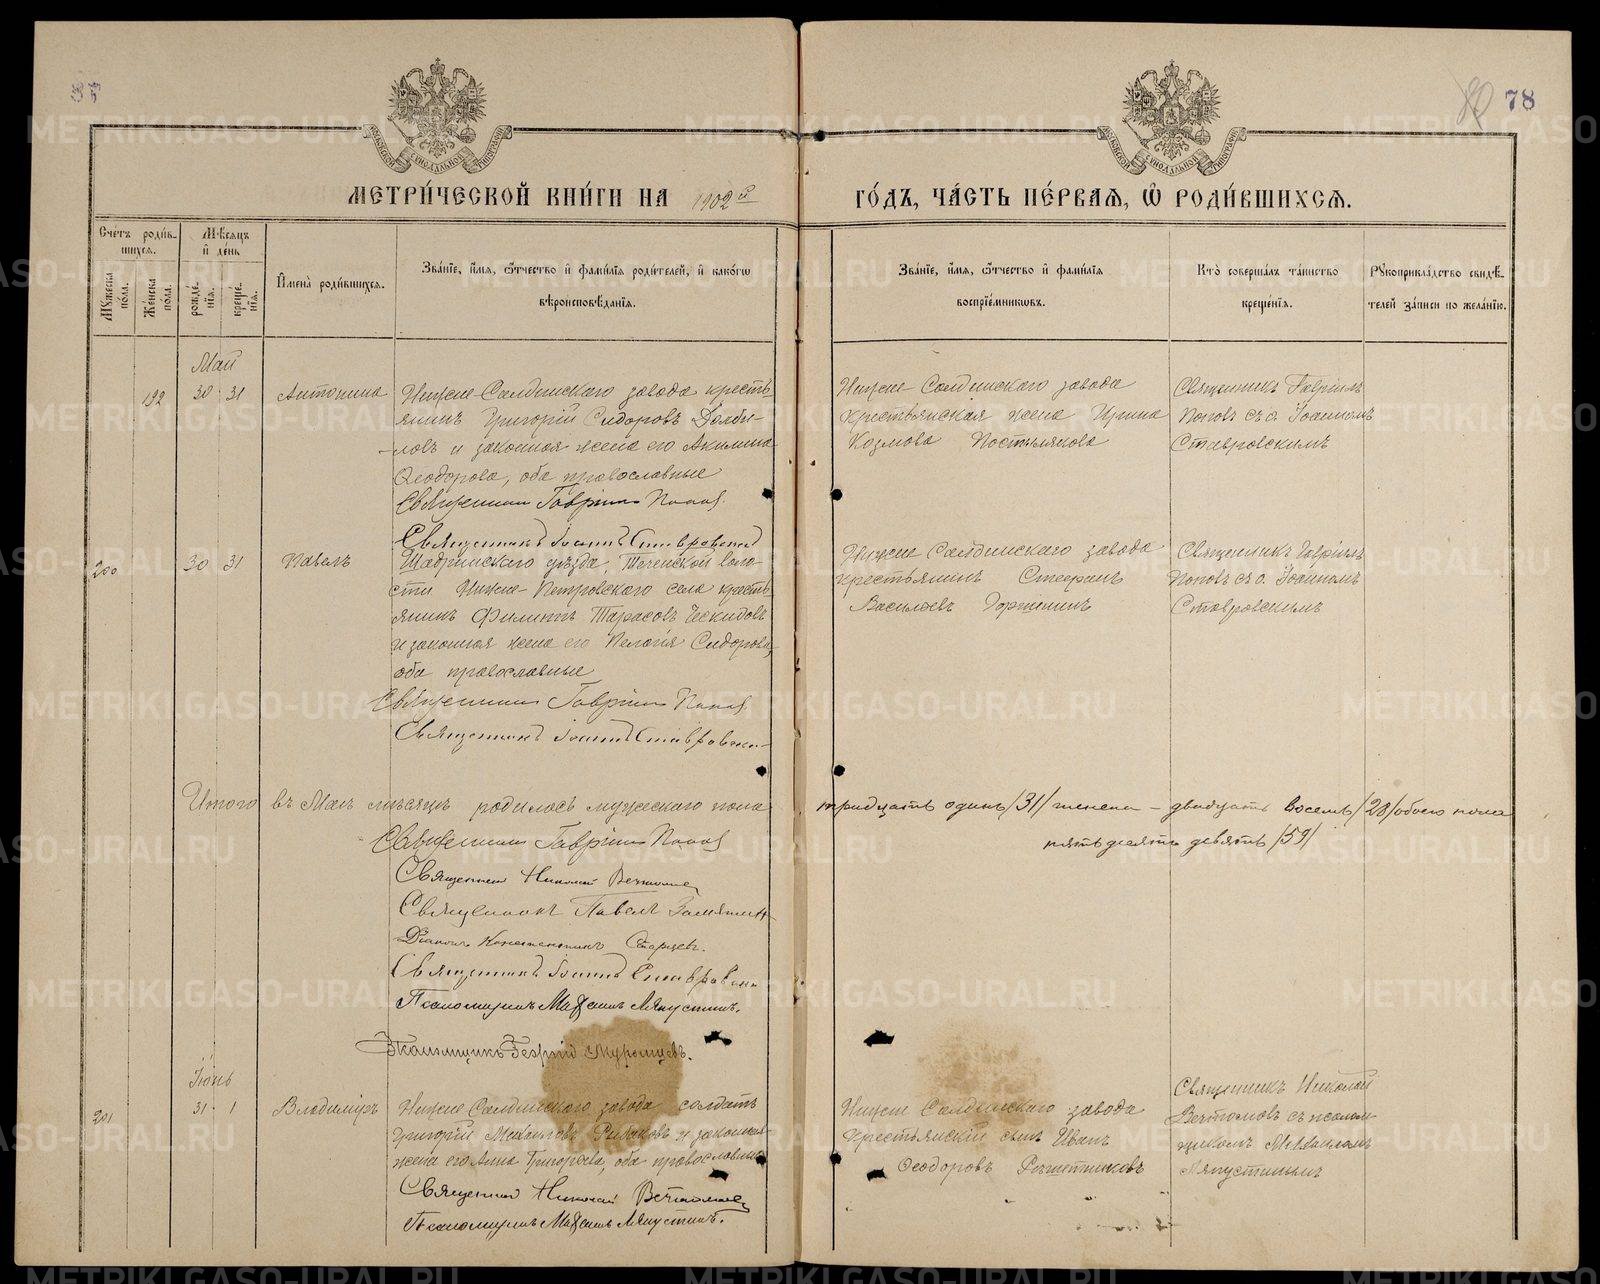 78
МОСКОВСКОЙ СѴНОДАЛЬНОЙ ТИПОГРАФІИ
МОСКОВСКОЙ СѴНОДАЛЬНОЙ ТИПОГРАФІИ
МЕТРИ́ЧЕСКОЙ КНИ́ГИ НА 1902 й ГО́ДЪ, ЧА́СТЬ ПЕ́РВАѦ, Ѽ РОДИ́ВШИХСѦ.
Сче́тъ роди́вшихсѧ.
Мꙋ́жеска по́ла.
Же́нска по́ла.
Мѣ́сѧцъ и҆ де́нь
рожде́нїѧ.
креще́нїѧ.
И҆мена̀ роди́вшихсѧ.
Зва́нїе, и҆́мѧ, ѻ҆́тчество и҆ фами́лїѧ роди́телей, и҆ како́гѡ вѣроисповѣ́данїѧ.
Зва́нїе, и҆́мѧ, ѻ҆́тчество и҆ фами́лїѧ воспрїе́мниковъ.
Кто̀ соверша́лъ та́инство креще́нїѧ.
Рꙋкоприкла́дство свидѣ́телей за́писи по жела́нїю.
Май
192 30 31 Антонина
Нижне Салдинскаго завода кресть-
янинъ Григорій Сидоровъ Долби-
ловъ и законная жена его Акилина
Ѳеодорова, оба православные
Священникъ Гавріилъ Поповъ.
Священникъ Іоаннъ Ставровскій
Нижне Салдинскаго завода
крестьянская жена Ирина
Козмова Постылякова
Священникъ Гавріилъ
Поповъ съ о. Іоанномъ
Ставровскимъ
200 30 31 Павелъ
Шадринскаго уѣзда, Теченской воло-
сти Нижне-Петровскаго села кресть-
янинъ Филиппъ Тарасовъ Ческидовъ
и законная жена его Пелагія Сидорова,
оба православные
Священникъ Гавріилъ Поповъ
Священникъ Іоаннъ Ставровскій
Нижне Салдинскаго завода
крестьянинъ Стефанъ
Василіевъ Горяинъ
Священникъ Гавріилъ
Поповъ съ о. Іоанномъ
Ставровскимъ
Итого въ Маѣ мѣсяцѣ родилось мужескаго пола тридцать одинъ /31/ женска – двадцать восемь /28/ обоего пола
пятьдесятъ девять /59/
Священникъ Гавріилъ Поповъ
Священникъ Николай Вечтомовъ
Священникъ Павелъ Замятинъ
Діаконъ Константинъ Старцевъ.
Священникъ Іоаннъ Ставровскій
Псаломщикъ Михаилъ Ляпустинъ.
Псаломщикъ Георгій Муромцевъ.
Іюнь
201 31 1 Владиміръ
Нижне Салдинскаго завода солдатъ
Григорій Михаиловъ Рыбаковъ и законная
жена его Анна Григорьева, оба православные
Священникъ Николай Вечтомовъ
Псаломщикъ Михаилъ Ляпустинъ.
Нижне Салдинскаго завода
Крестьянскій сынъ Иванъ
Ѳеодоровъ Рѣшетниковъ
Священникъ Николай
Вечтомовъ съ псалом-
щикомъ Михаиломъ
Ляпустинымъ
METRIKI.GASO-URAL.RU